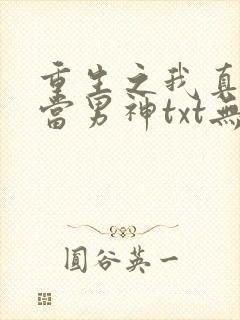 重生之我真
當男神txt無
圓谷英一